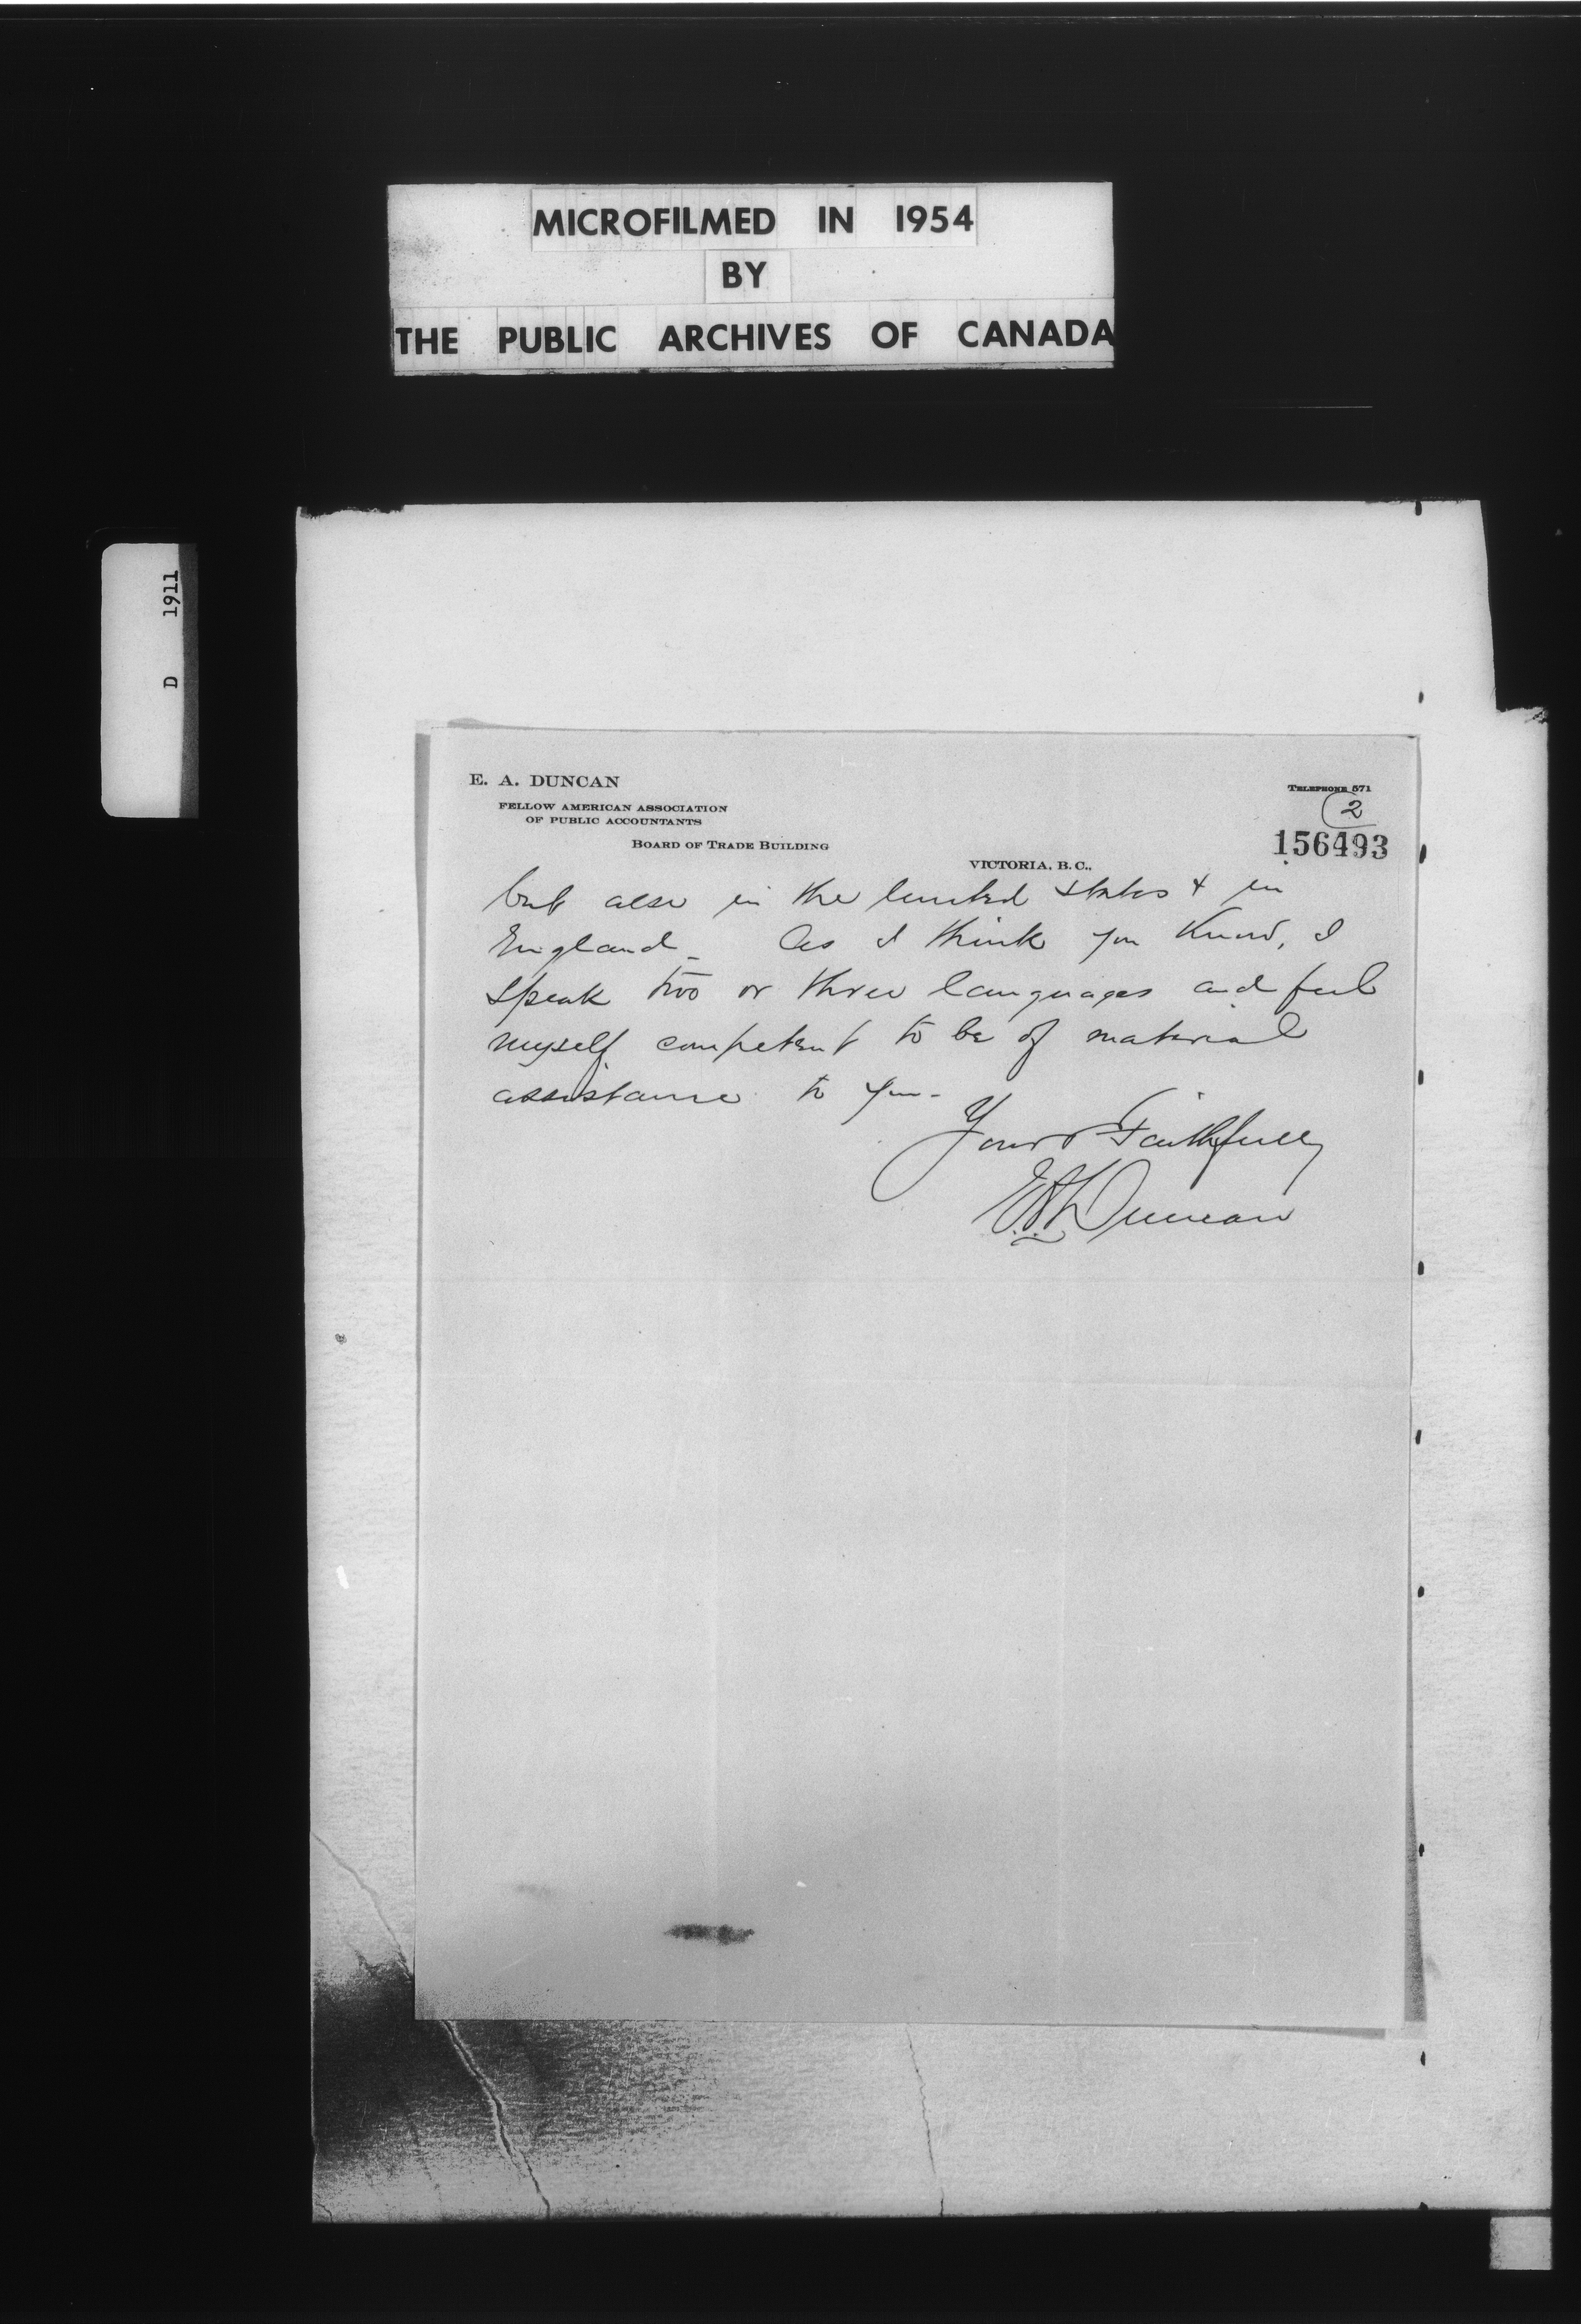 MICROFILMED IN 1954
BY
THE PUBLIC ARCHIVES OF CANADA
D 1911
E. A. DUNCAN
FELLOW AMERICAN ASSOCIATION
OF PUBLIC ACCOUNTANTS
BOARD OF TRADE BUILDING
TELEPHONE 571
2
156493
VICTORIA, B.C.,
but also in the United States & in
England – As I think you know, I
speak two or three languages and feel
myself competent to be of material
assistance to you –
Yours Faithfully
E.A. Duncan